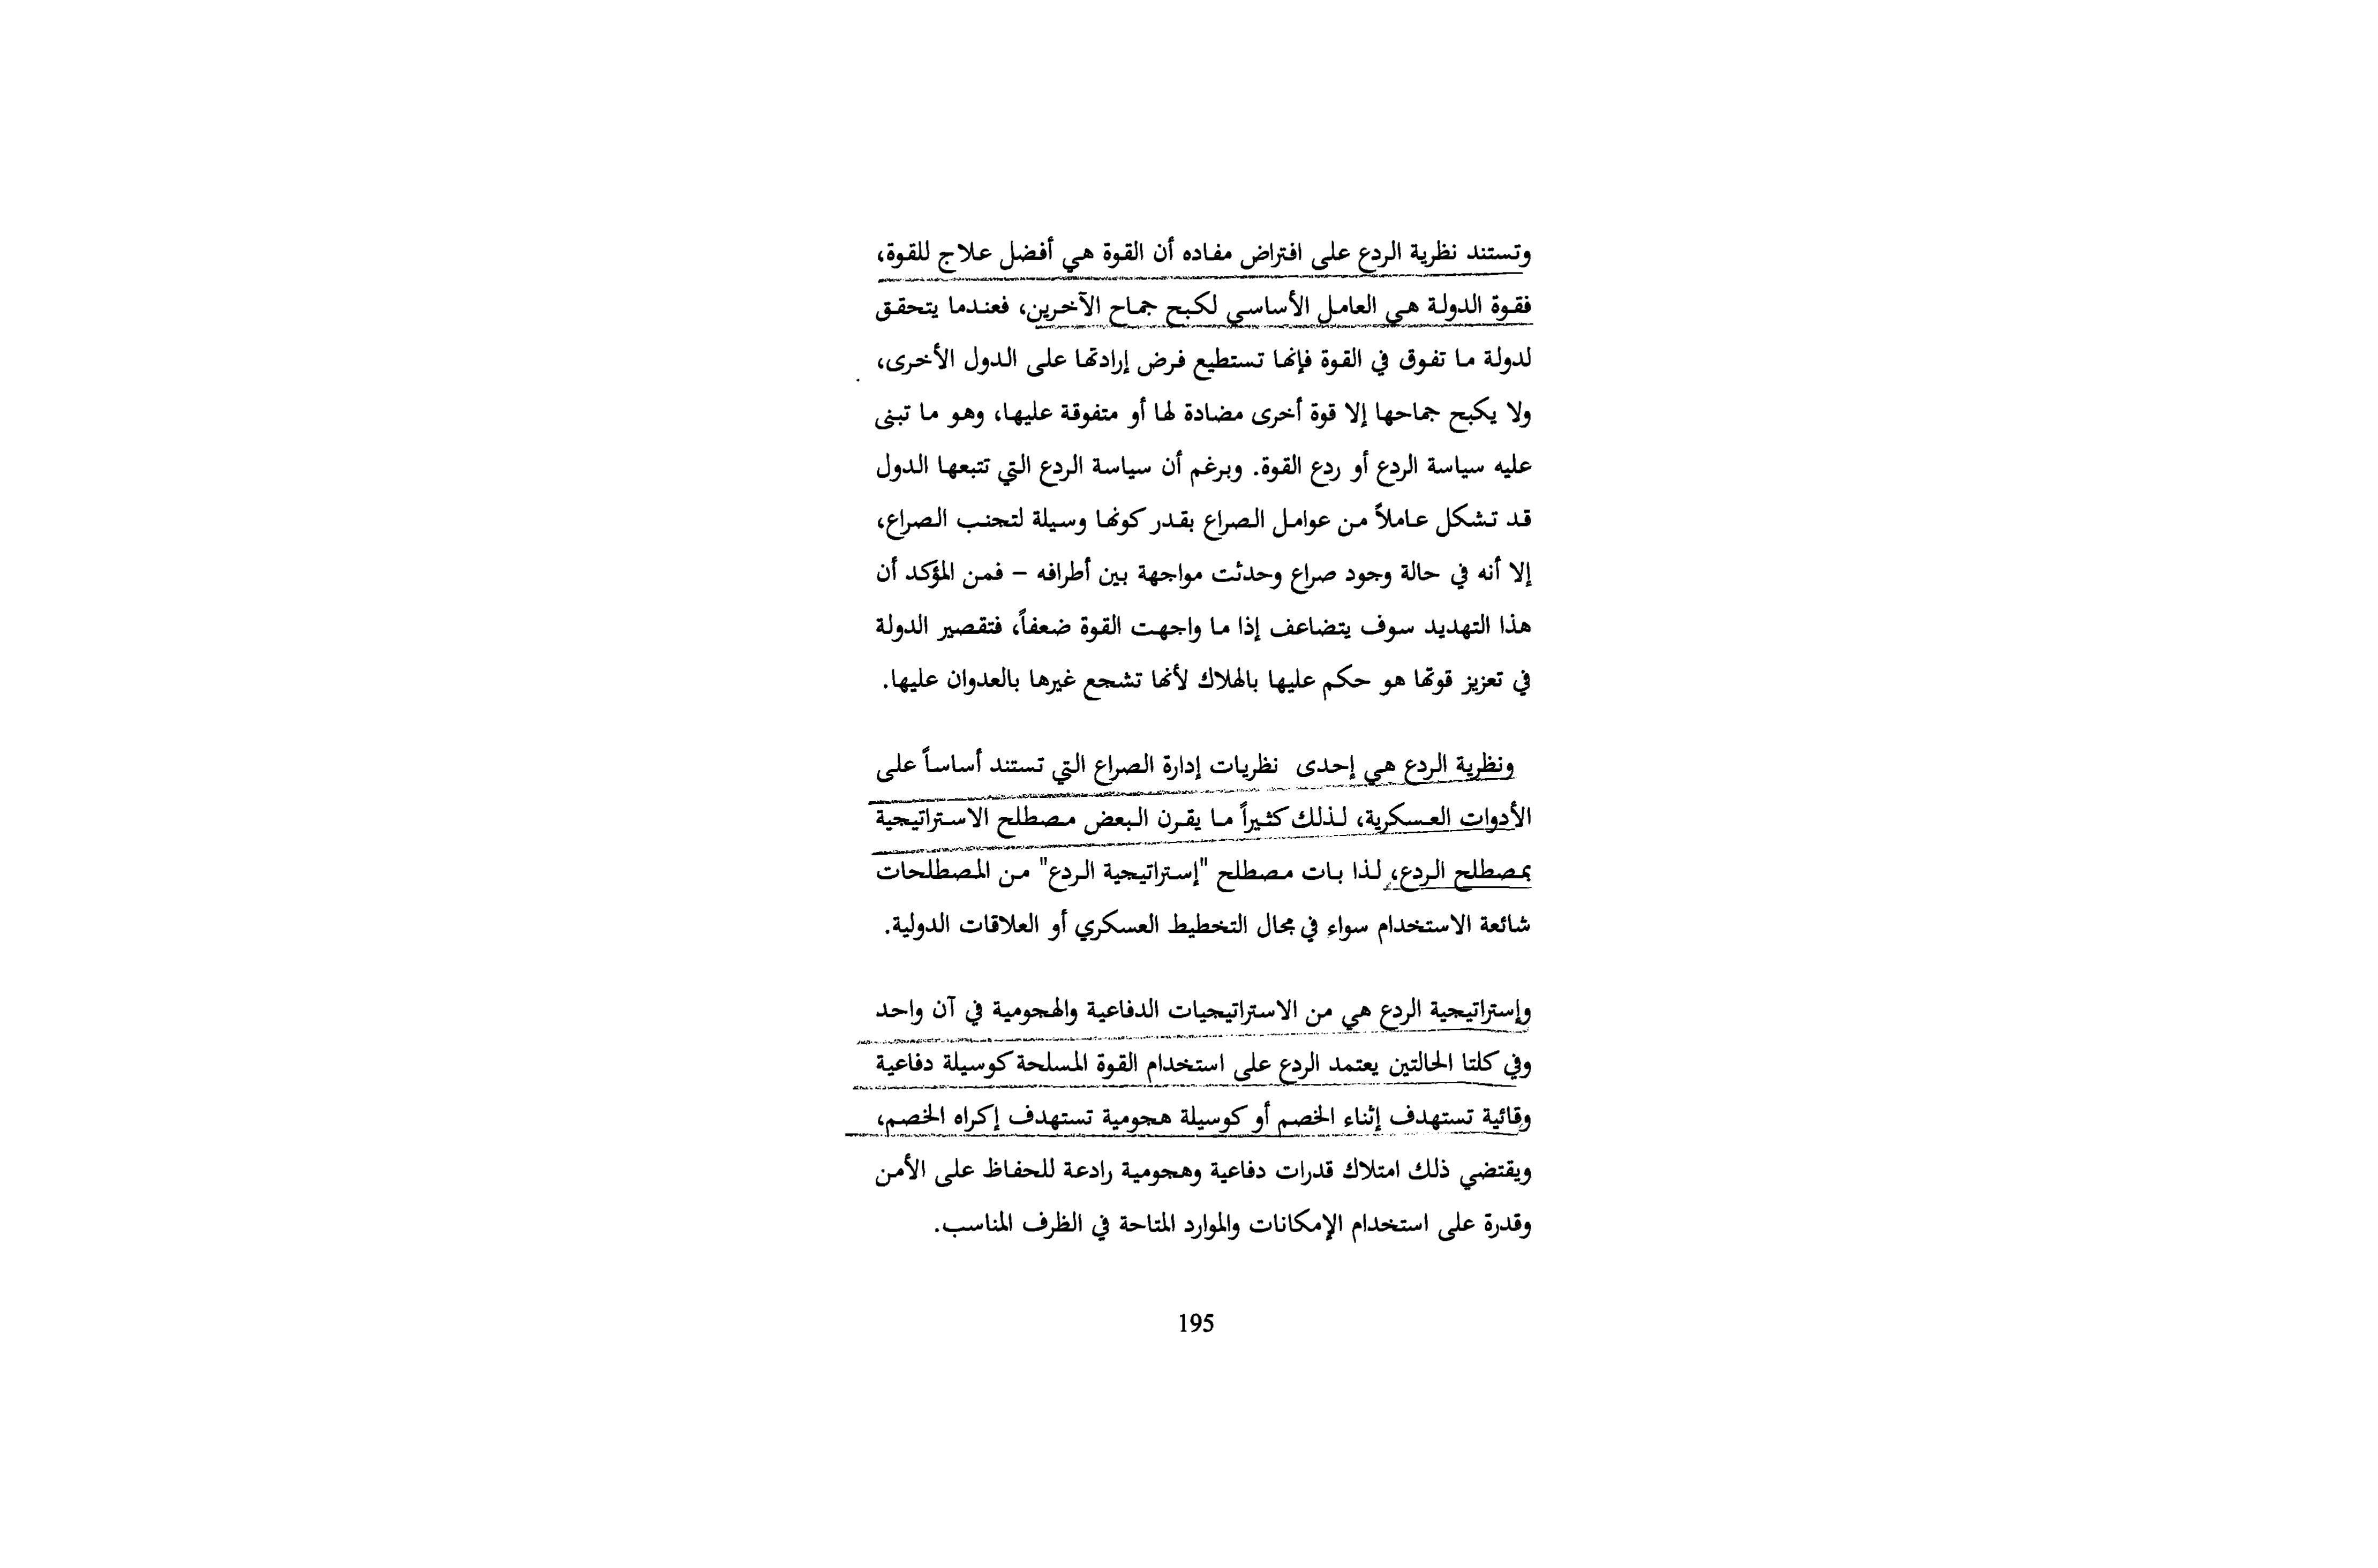 وتستند نظرية الردع على افتراض مفاده أن القوة هي أفضل علاج للقوة،
فقوة الدولة هي العامل الأساسي لكبح جماح الآخرين، فعندما يتحقق
لدولة ما تفوق في القوة فإنها تستطيع فرض إرادتها على الدول الأخرى،
ولا يكبح جماحها إلا قوة أخرى مضادة لها أو متفوقة عليها، وهو ما تبنى
عليه سياسة الردع أو ردع القوة. وبرغم أن سياسة الردع التي تتبعها الدول
قد تشكل عاملاً من عوامل الصراع بقدر كونها وسيلة لتجنب الصراع،
إلا أنه في حالة وجود صراع وحدثت مواجهة بين أطرافه – فمن المؤكد أن
هذا التهديد سوف يتضاعف إذا ما واجهت القوة ضعفاً، فتقصير الدولة
في تعزيز قوتها هو حكم عليها بالهلاك لأنها تشجع غيرها بالعدوان عليها.
ونظرية الردع هي إحدى نظريات إدارة الصراع التي تستند أساساً على
الأدوات العسكرية، لذلك كثيراً ما يقرن البعض مصطلح الاستراتيجية
بمصطلح الردع، لذا بات مصطلح "إستراتيجية الردع" من المصطلحات
شائعة الاستخدام سواء في مجال التخطيط العسكري أو العلاقات الدولية.
وإستراتيجية الردع هي من الاستراتيجيات الدفاعية والهجومية في آن واحد
وفي كلتا الحالتين يعتمد الردع على استخدام القوة المسلحة كوسيلة دفاعية
وقائية تستهدف إثناء الخصم أو كوسيلة هجومية تستهدف إكراه الخصم،
ويقتضي ذلك امتلاك قدرات دفاعية وهجومية رادعة للحفاظ على الأمن
وقدرة على استخدام الإمكانات والموارد المتاحة في الظرف المناسب.
195